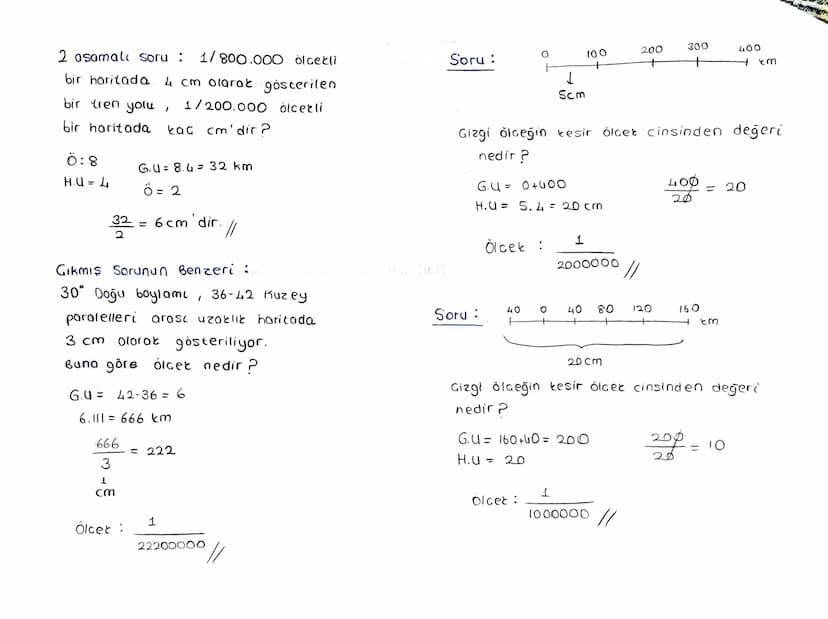 2 aşamalı soru : 1/800.000 ölçekli
bir haritada 4 cm olarak gösterilen
bir tren yolu , 1/200.000 ölçekli
bir haritada kaç cm'dir?
Ö: 8
H.U = 4
G.U = 8.4 = 32 km
Ö = 2
32/2 = 6cm'dir. //
Çıkmış Sorunun Benzeri :
30° Doğu boylamı , 36-42 Kuzey
paralelleri arası uzaklık haritada
3 cm olarak gösteriliyor.
Buna göre ölçek nedir?
G.U = 42-36 = 6
6.111 = 666 km
666/3 = 222
1
cm
Ölçek : 1/22200000 //
Soru :
0 100 200 300 400
km
5cm
Çizgi ölçeğin kesir ölçek cinsinden değeri
nedir?
G.U = 0+400
H.U = 5.4 = 20 cm
400/20 = 20
Ölçek : 1/2000000 //
Soru :
40 0 40 80 120 160
km
20cm
Çizgi ölçeğin kesir ölçek cinsinden değeri
nedir?
G.U = 160+40 = 200
H.U = 20
200/20 = 10
Ölçek : 1/1000000 //